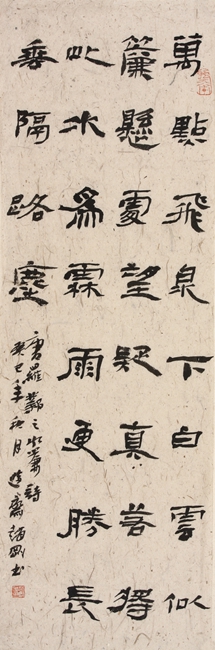 萬點飛泉下白雲似
簾懸處望疑真若將
此水爲霖雨更勝長
垂隔路塵
唐羅鄴之水簾詩
癸巳年秋月